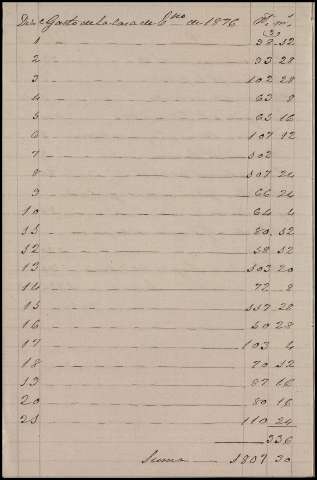 Dias Gasto de la casa de Eno de 1876 Ps ms
1 98 12
2 93 28
3 102 28
4 63 8
5 65 16
6 107 12
7 102
8 107 24
9 66 24
10 64 4
11 80 12
12 58 12
13 103 20
14 72 8
15 117 28
16 60 28
17 103 4
18 70 12
19 87 16
20 80 16
21 110 24
336
Suma 1807 30